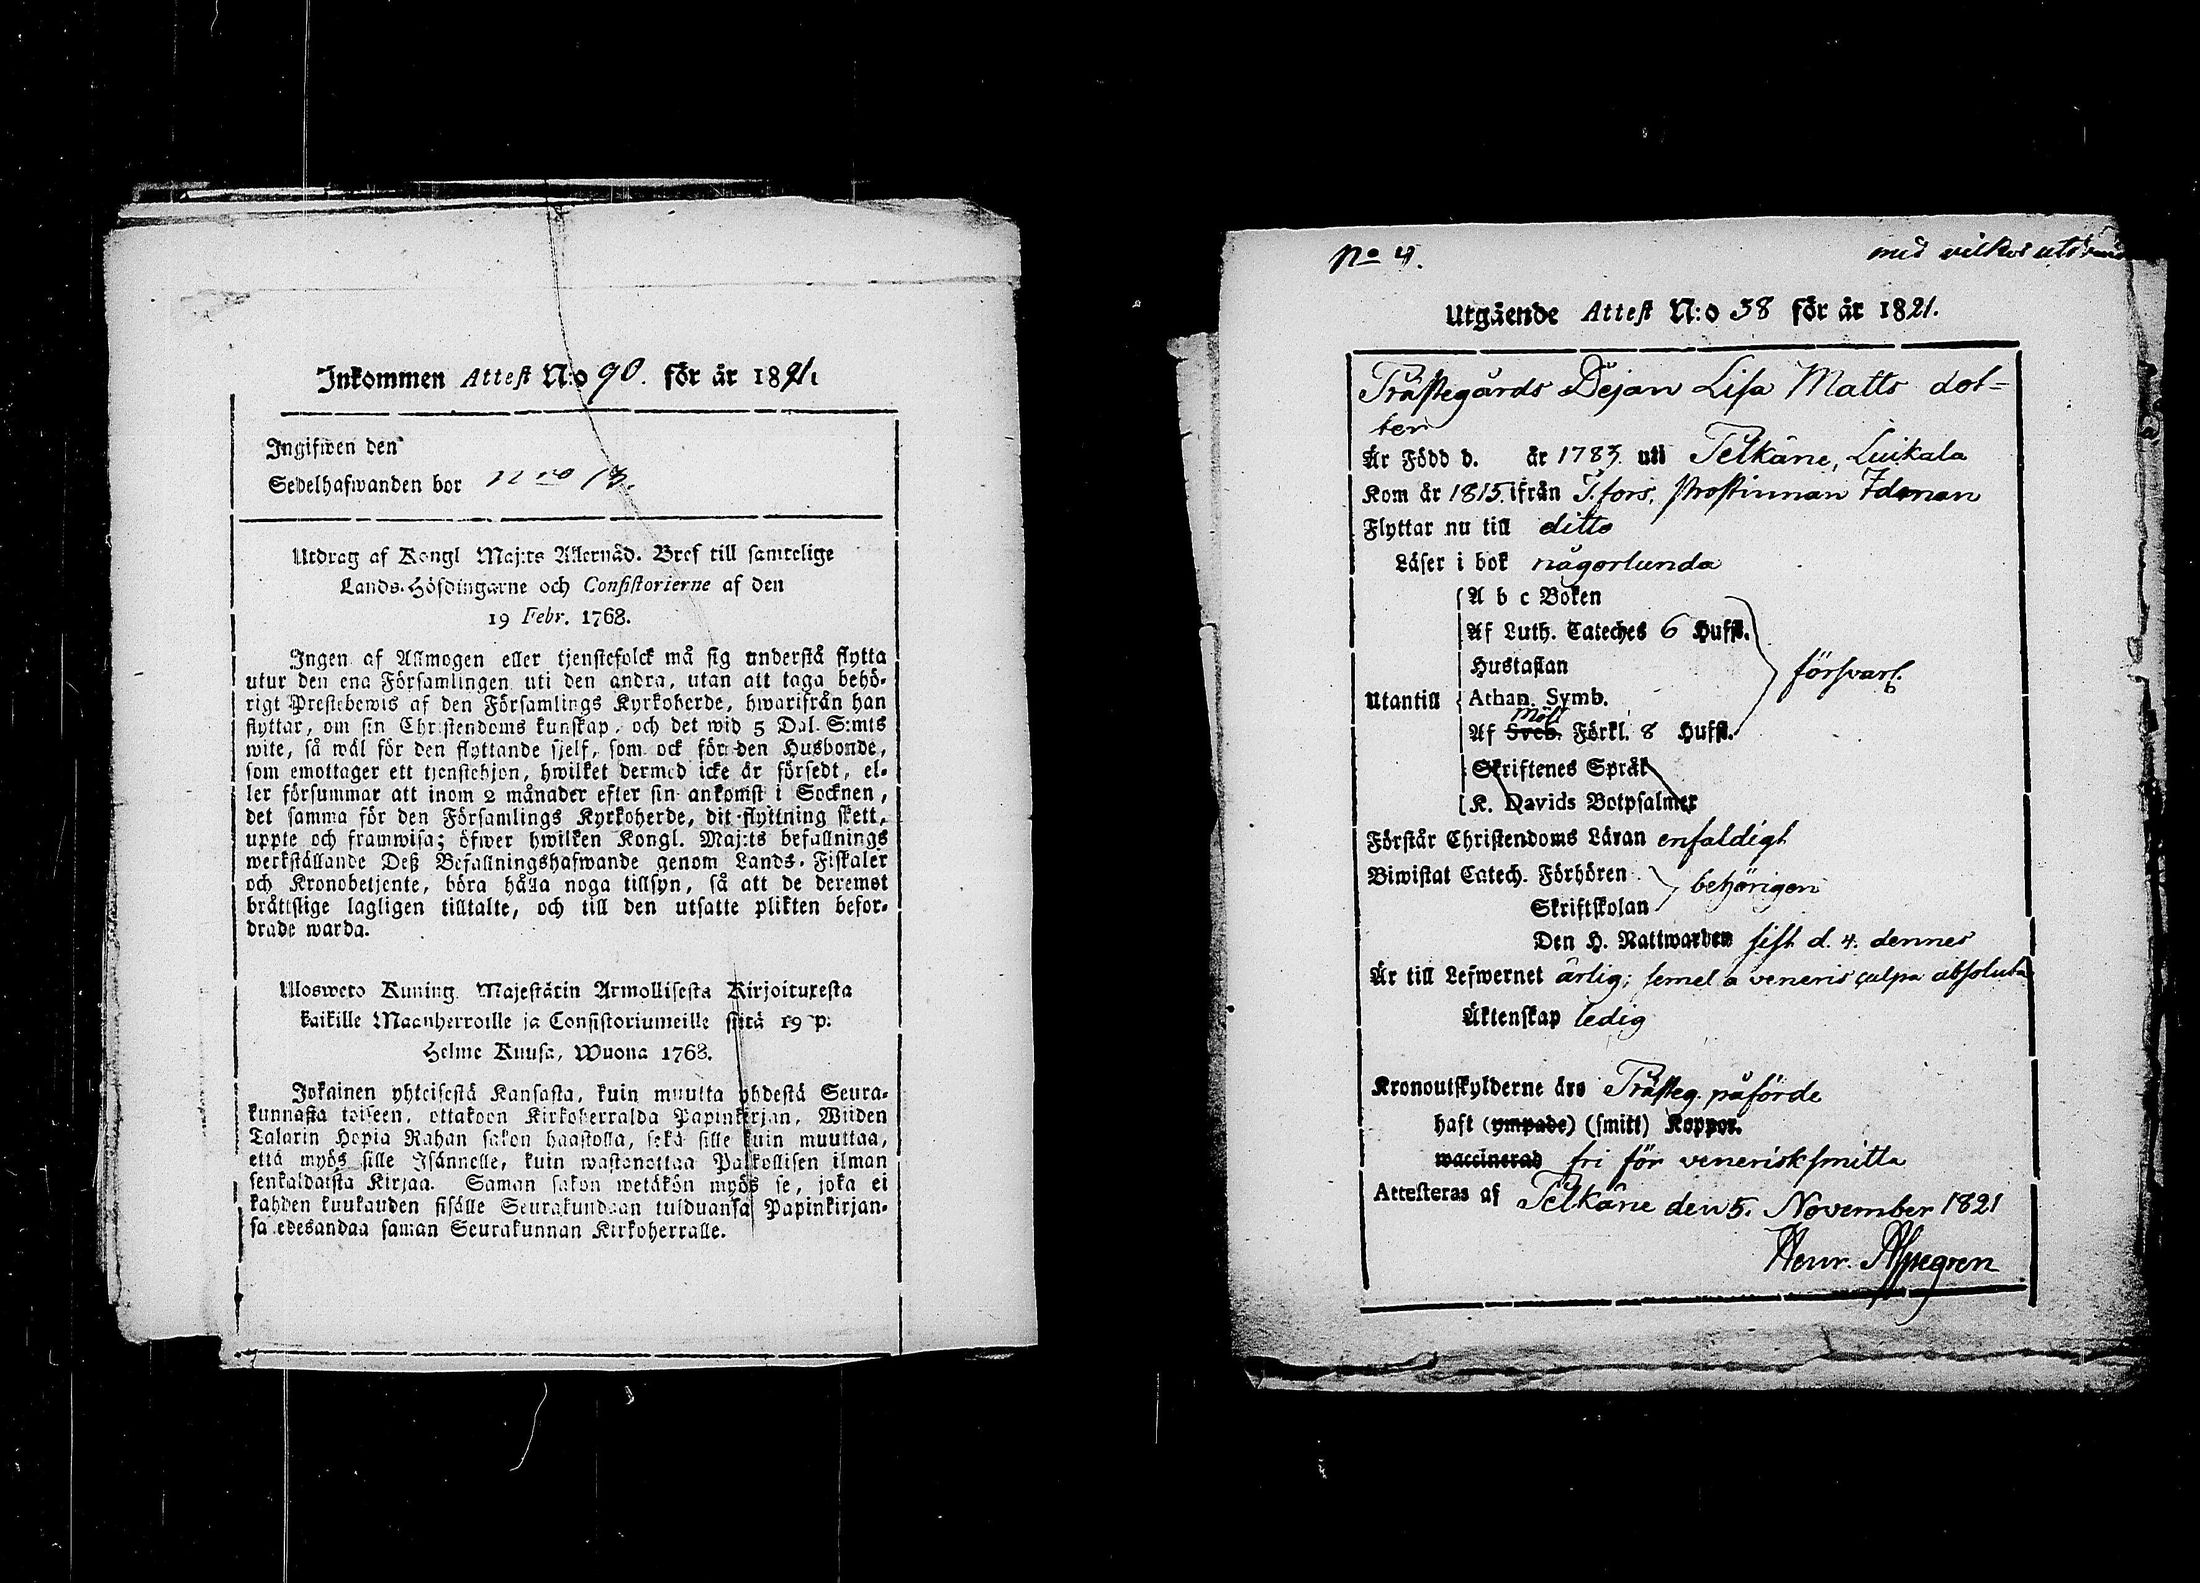 Inkommen Attest N:o 90. för år 1821.
Ingifwen den
Sedelhafwanden bor nro 13.
Utdrag af Kongl Maj:ts Allernåd. Bref till samtelige
Lands-Höfdingarne och Consistorierne af den
19 Febr. 1768.
Ingen af Allmogen eller tjenstefolck må sig understå flytta
utur den ena Församlingen uti den andra, utan att taga behö-
rigt Prestebewis af den Församlings Kyrkoherde, hwarifrån han
flyttar, om sin Christendoms kunskap, och det wid 5 Dal. S:mts
wite, så wäl för den flyttande sjelf, som ock för den Husbonde,
som emottager ett tjenstehjon, hwilket dermed icke är försedt, el-
ler försummar att inom 2 månader efter sin ankomst i Socknen,
det samma för den Församlings Kyrkoherde, dit flyttning skett,
uppte och framwisa; öfwer hwilken Kongl. Maj:ts befallnings
werkställande Deß Befallningshafwande genom Lands-Fiskaler
och Kronobetjente, böra hålla noga tillsyn, så att de deremot
bråttslige lagligen tilltalte, och till den utsatte plikten befor-
drade warda.
Ulosweto Kuning. Majestätin Armollisesta Kirjoituxesta
kaikille Maanherroille ja Consistoriumeille siitä 19 p:
Helme Kuusa, Wuona 1768.
Jokainen yhteisestä Kansasta, kuin muutta yhdestä Seura-
kunnasta toiseen, ottakoon Kirkoherralda Papinkirjan, Wiiden
Talarin Hopia Rahan sakon haastolla, sekä sille kuin muuttaa,
että myös sille Isännelle, kuin wastanottaa Palkollisen ilman
senkaldaista Kirjaa. Saman sakon wetäkön myös se, joka ei
kahden kuukauden sisälle Seurakundaan tulduansa Papinkirjan-
sa edesandaa saman Seurakunnan Kirkoherralle.
No 4.
med vilkor
Utgående Attest N:o 58 för år 1821.
Prästegårds Dejan Lisa Matts dot=
ter
Är Född d. år 1783. uti Pelkäne, Luikala
Kom år 1815. ifrån T.fors, Prostinnan Idman
Flyttar nu till ditto
Läser i bok någorlunda
Utantill
A b c Boken
Af Luth. Cateches 6 Hufst.
Hustaflan
Athan. Symb.
Möll
Af Sveb. Förkl. 8 Hufst.
försvarl.
Skriftenes Språk
K. Davids Botpsalmer
Förstår Christendoms Läran enfaldigt
Biwistat Catech. Förhören
Skriftskolan
behörigen
Den H. Nattwarden sist d. 4. dennes
Är till Lefwernet ärlig; semel a veneris culpa absoluta
Äktenskap ledig
Kronoutskylderne äro Prästeg. påförde
haft (ympade) (smitt) Koppor.
waccinerad fri för venerisk smitta
Attesteras af Pelkäne den 5. November 1821
Henr. Aspegren